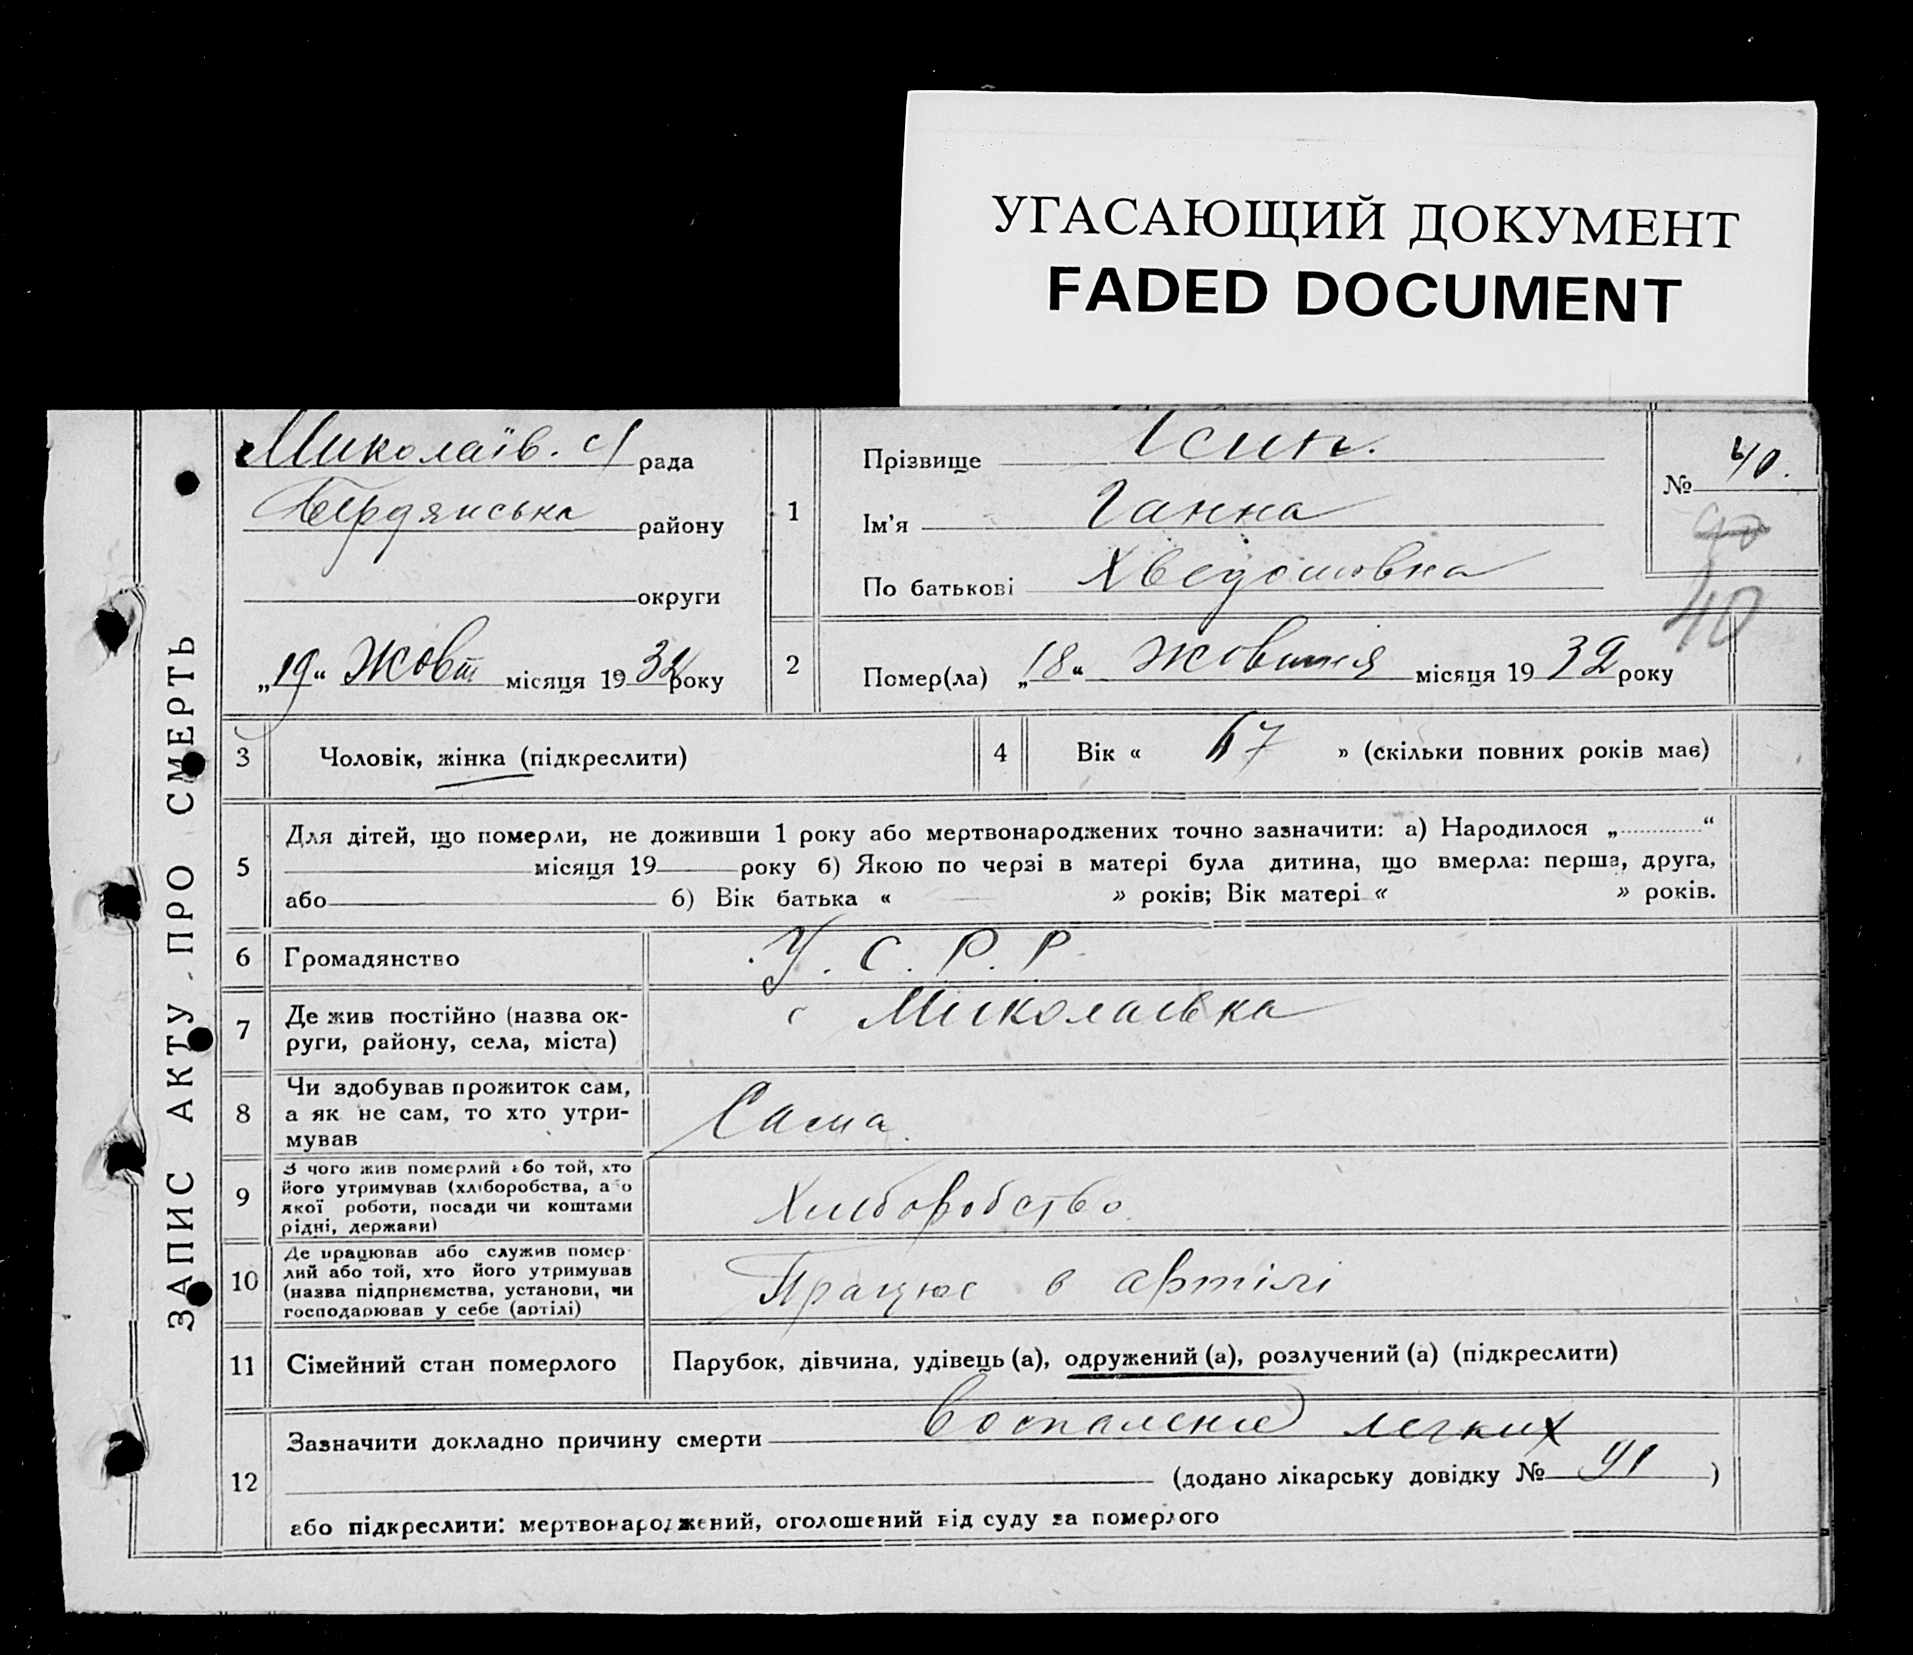 УГАСАЮЩИЙ ДОКУМЕНТ
FADED DOCUMENT
ЗАПИС АКТУ ПРО СМЕРТЬ
Миколаїв. с/рада
Бердянська району
округи
„19“ Жовт місяця 1932 року
1
Прізвище Ісип.
Ім'я Ганна
По батькові
№ 40.
40
40
2 Помер(ла) „18“ Жовтня місяця 1932 року
3 Чоловік, жінка (підкреслити)
4 Вік « 67 » (скільки повних років має)
5 Для дітей, що померли, не доживши 1 року або мертвонароджених точно зазначити: а) Народилося „ “
місяця 19 року б) Якою по черзі в матері була дитина, що вмерла: перша, друга,
або б) Вік батька « » років; Вік матері « » років.
6 Громадянство У. С. Р. Р.
7 Де жив постійно (назва ок-
руги, району, села, міста) с Миколаївка
8 Чи здобував прожиток сам,
а як не сам, то хто утри-
мував Сама.
9 З чого жив померлий або той, хто
його утримував (хліборобства, або
якої роботи, посади чи коштами
рідні, держави) Хліборобство
10 Де працював або служив помер-
лий або той, хто його утримував
(назва підприємства, установи, чи
господарював у себе (артілі) Працює в артілі
11 Сімейний стан померлого Парубок, дівчина, удівець (а), одружений (а), розлучений (а) (підкреслити)
12 Зазначити докладно причину смерти Воспаление легких
(додано лікарську довідку № 41 )
або підкреслити: мертвонароджений, оголошений від суду за померлого